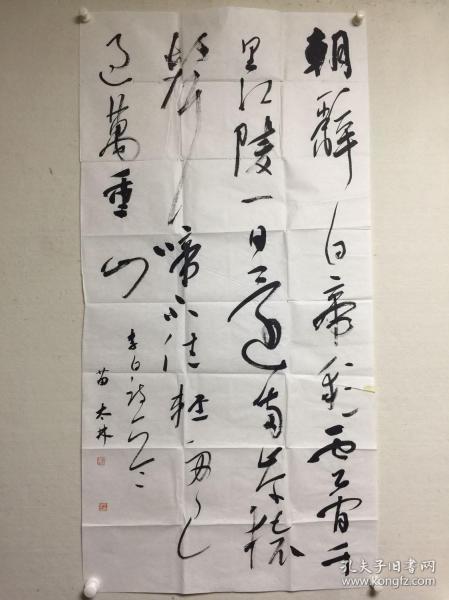 朝辞白帝彩云间千
里江陵一日还两岸猿
声啼不住轻舟已
过萬重山
李白诗一首
苗太林
孔夫子旧书网
www.kongfz.com